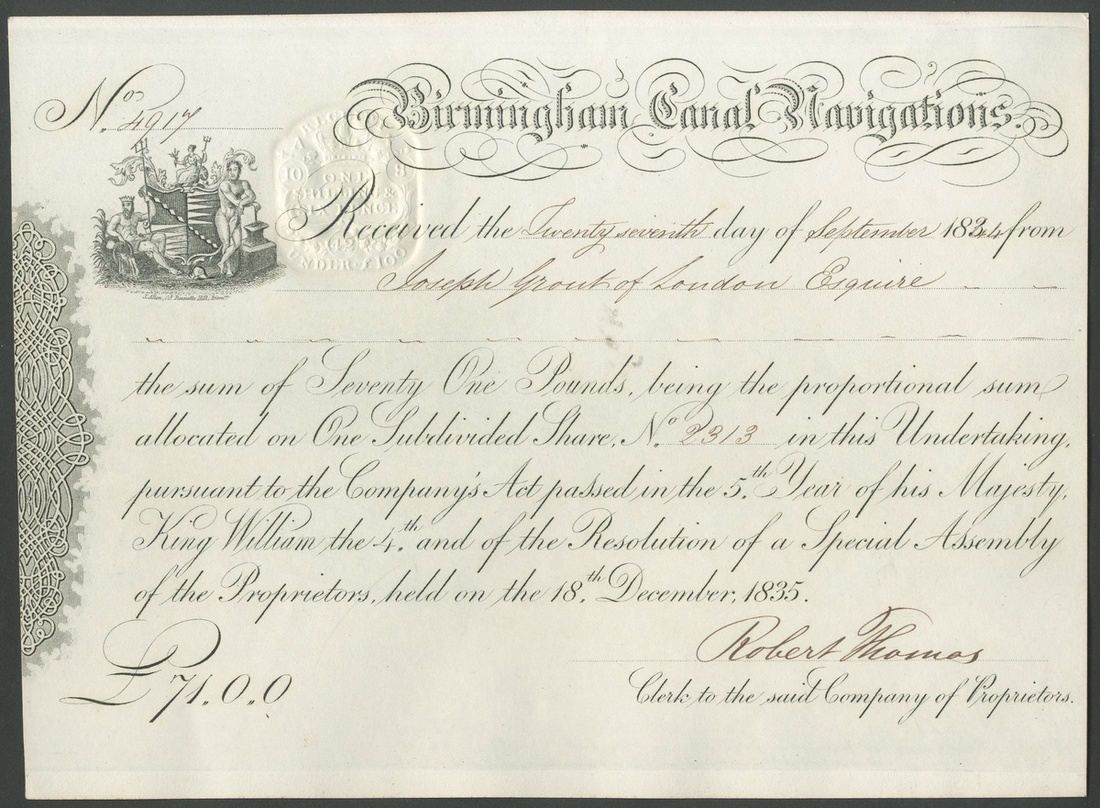 No. 4917
Birmingham Canal Navigations.
10 ONE 8
SHILLING &
SIX PENCE
UNDER £100
Received the Twenty seventh day of September 1844 from
Joseph Grout of London Esquire
the sum of Seventy One Pounds, being the proportional sum
allocated on One Subdivided Share, No. 2313 in this Undertaking,
pursuant to the Company's Act passed in the 5.th Year of his Majesty,
King William the 4.th and of the Resolution of a Special Assembly
of the Proprietors, held on the 18.th December, 1835.
Robert Thomas
£71.0.0
Clerk to the said Company of Proprietors.